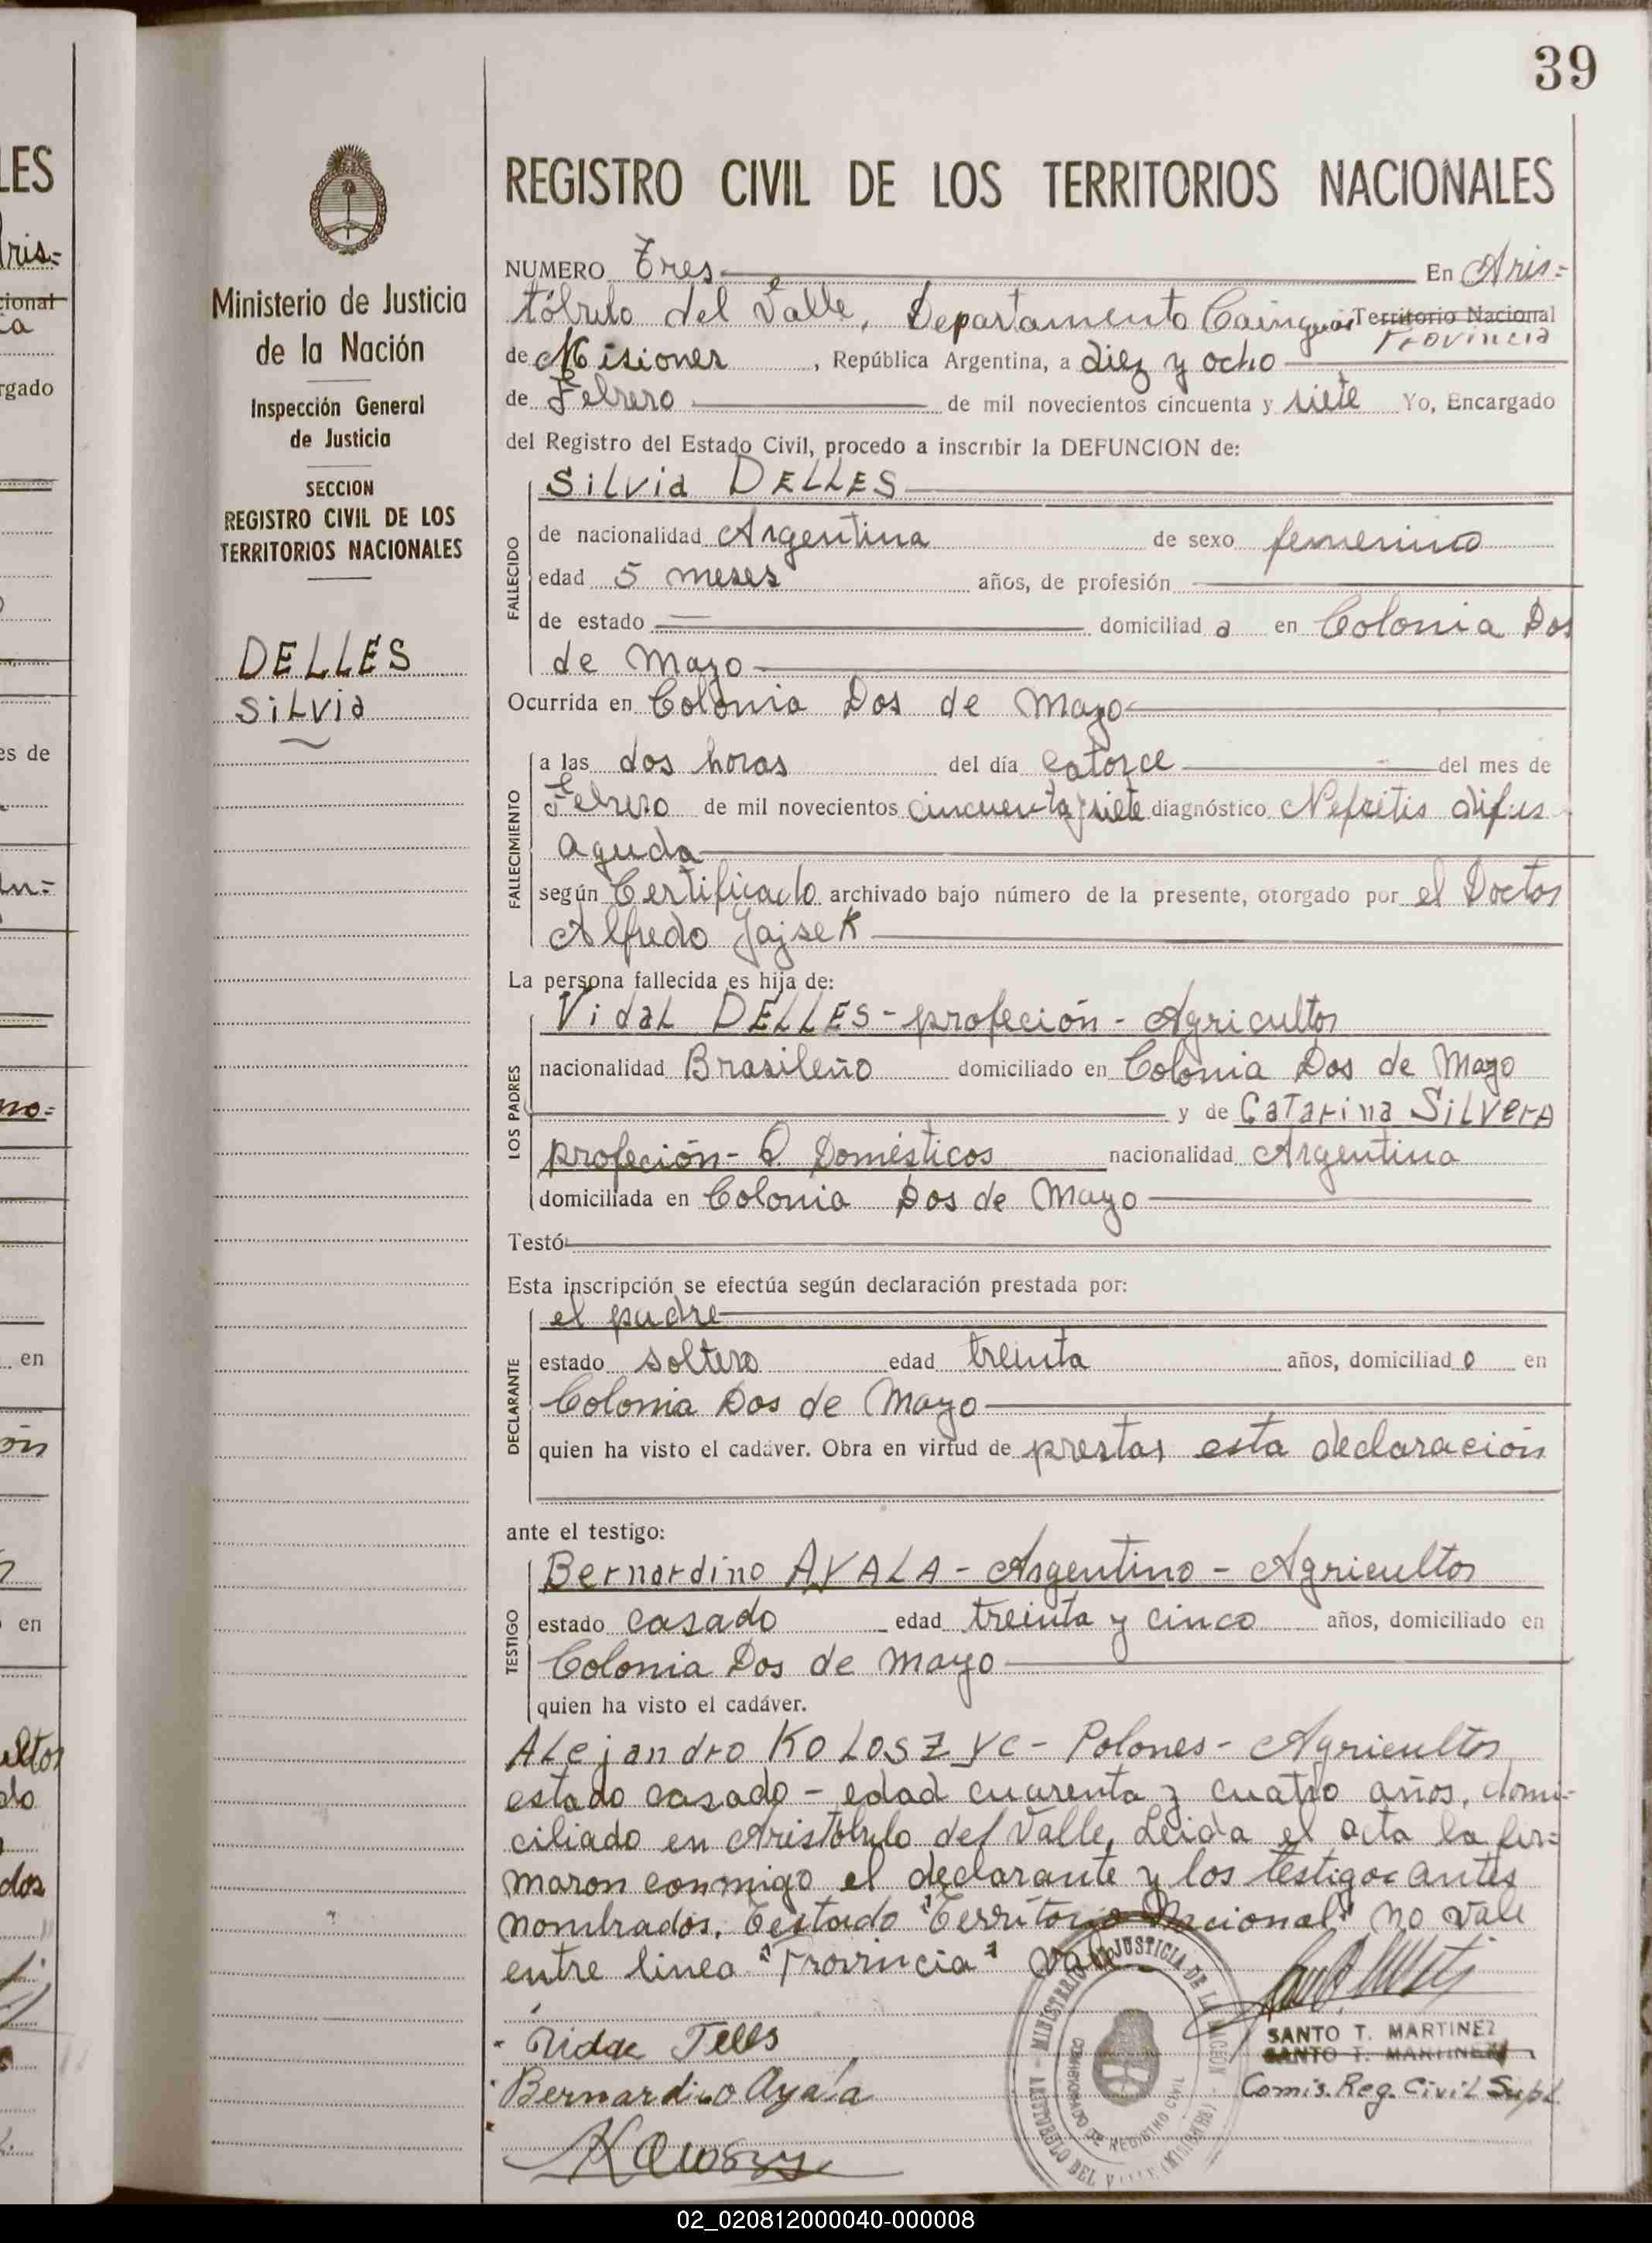 39
LES
ris=
cional
ca
rgado
es de
un=
no=
en
ón
en
ultor
do
dos
Ministerio de Justicia
de la Nación
Inspección General
de Justicia
SECCION
REGISTRO CIVIL DE LOS
TERRITORIOS NACIONALES
DELLES
Silvia
REGISTRO CIVIL DE LOS TERRITORIOS NACIONALES
NUMERO Tres En Aris=
tóbulo del Valle, Departamento Cainguas Territorio Nacional
Provincia
de Misiones, República Argentina, a diez y ocho
de Febrero de mil novecientos cincuenta y siete Yo, Encargado
del Registro del Estado Civil, procedo a inscribir la DEFUNCION de:
FALLECIDO
Silvia DELLES
de nacionalidad Argentina de sexo femenino
edad 5 meses años, de profesión
de estado domiciliad a en Colonia Dos
de Mayo
Ocurrida en Colonia Dos de Mayo
FALLECIMIENTO
a las dos horas del día catorce del mes de
Febrero de mil novecientos cincuenta y siete diagnóstico Nefritis difus
aguda
según Certificado archivado bajo número de la presente, otorgado por el Doctor
Alfredo Jajsek
La persona fallecida es hija de:
LOS PADRES
Vidal DELLES - profeción - Agricultor
nacionalidad Brasileño domiciliado en Colonia Dos de Mayo
y de Catarina SILVERA
profeción - Q. Domésticos nacionalidad Argentina
domiciliada en Colonia Dos de Mayo
Testó
Esta inscripción se efectúa según declaración prestada por:
DECLARANTE
el padre
estado soltero edad treinta años, domiciliad o en
Colonia Dos de Mayo
quien ha visto el cadáver. Obra en virtud de prestar esta declaración
ante el testigo:
TESTIGO
Bernardino AYALA - Argentino - Agricultor
estado casado edad treinta y cinco años, domiciliado en
Colonia Dos de mayo
quien ha visto el cadáver.
Alejandro KOLOSZYC - Polones - Agricultor
estado casado - edad cuarenta y cuatro años, domi-
ciliado en Aristóbulo del Valle, Leida el acta la fir=
maron conmigo el declarante y los testigos antes
nombrados. Testado "Territorio Nacional" no vale
entre linea "Provincia" vale
MINISTERIO DE JUSTICIA DE LA NACIÓN - ARISTOBULO DEL VALLE (MISIONES)
COMISIONADO DE REGISTRO CIVIL
SANTO T. MARTINEZ
SANTO T. MARTINEZ
Comis. Reg. Civil Supl.
Tells
Bernardino Ayala
02_020812000040-000008